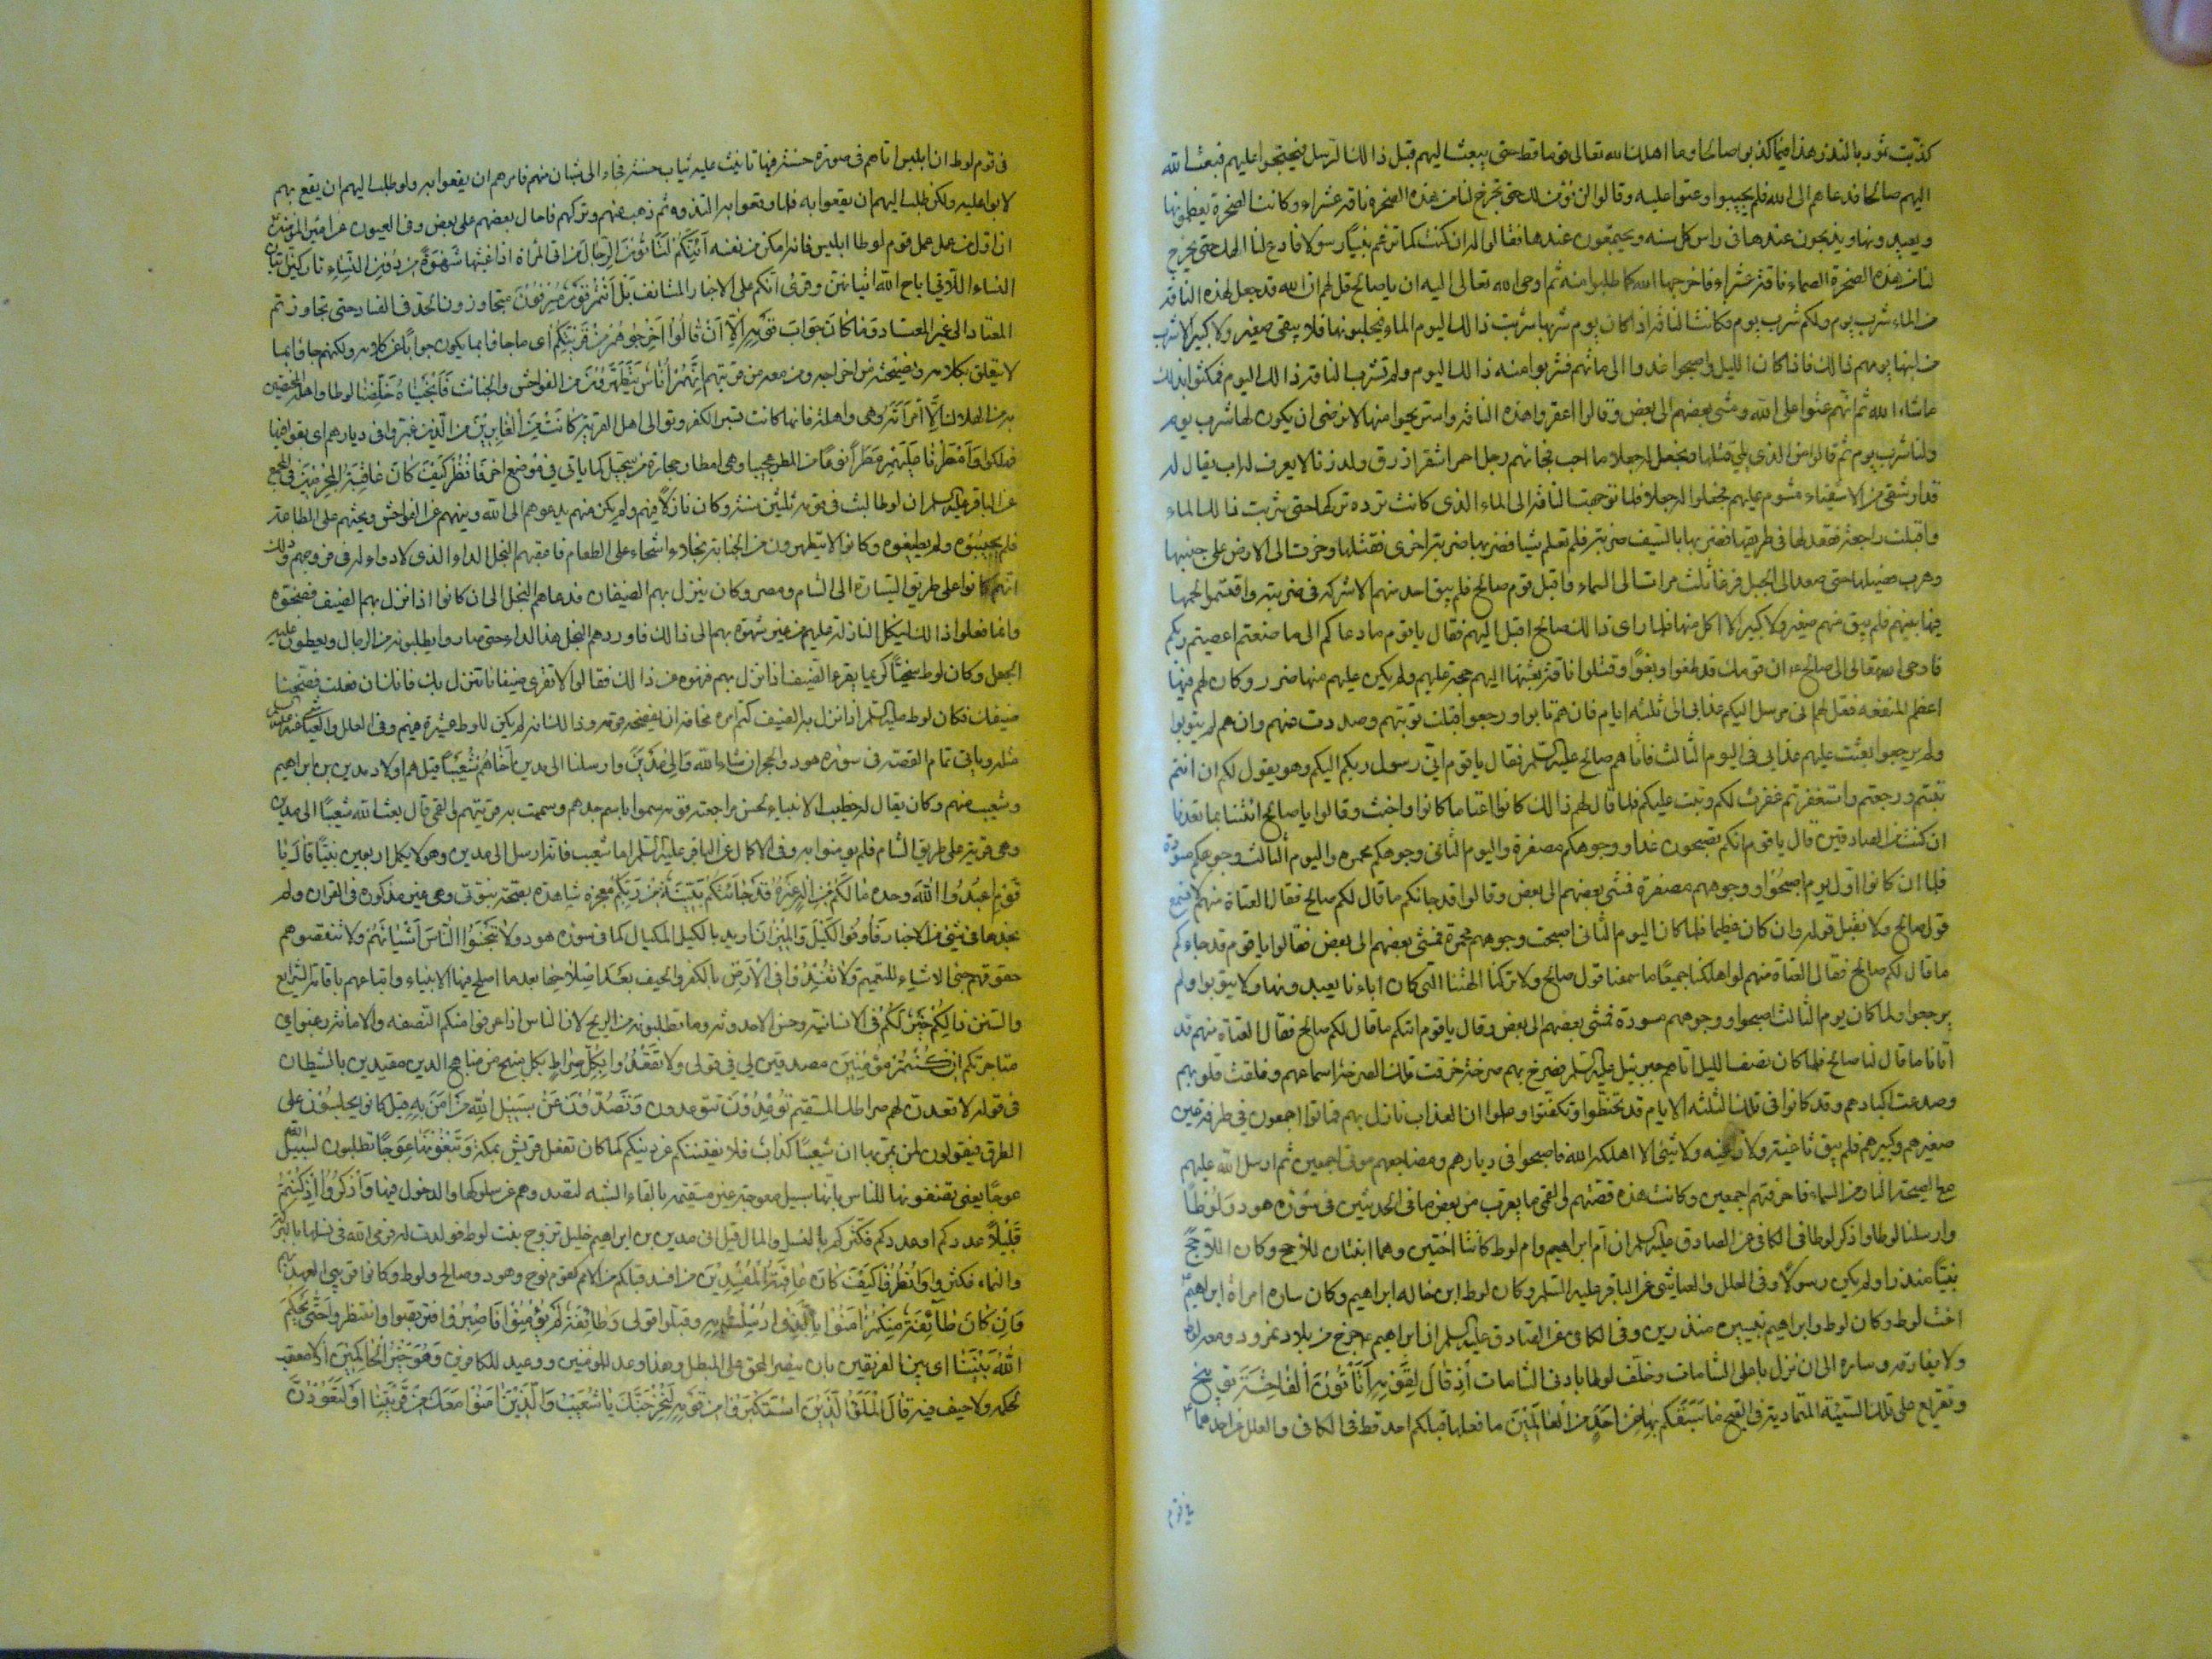 كذبت ثمود بالنذر هذا فيما كذبوا صالحا وما اهلك الله تعالى قوما قط حتى يبعث اليهم قبل ذالك الرسل فيحتجوا عليهم فبعث الله
اليهم صالحا فدعاهم الى الله فلم يجيبوا وعتوا عليه وقالوا لن نؤمن لك حتى تخرج لنا من هذه الصخرة ناقة عشراء وكانت الصخرة يعظمونها
ويعبدونها ويذبحون عندها في راس كل سنه ويجتمعون عندها فقالوا له ان كنت كما تزعم نبيّا رسولا فادع لنا الهك حتى يخرج
لنا من هذه الصخرة الصماء ناقة عشراء فاخرجها الله كما طلبوا منه ثم اوحى الله تعالى اليه ان يا صالح قل لهم ان الله قد جعل لهذه الناقة
من الماء شرب يوم ولكم شرب يوم فكانت الناقة اذا كان يوم شربها شربت ذالك اليوم الماء فيحلبونها فلا يبقى صغير ولا كبير الا شرب
من لبنها يومهم ذالك فاذا كان الليل واصبحوا غدوا الى مائهم فشربوا منه ذالك اليوم ولم تشرب الناقة ذالك اليوم فمكثوا بذلك
ما شاء الله ثم انهم عتوا على الله ومشى بعضهم الى بعض وقالوا اعقروا هذه الناقة واستريحوا منها لا نرضى ان يكون لها شرب يوم
ولنا شرب يوم ثم قالوا من الذى يلي قتلها ونجعل له جعلا ما احب فجائهم رجل احمر اشقر ازرق ولد زنا لا يعرف له اب يقال له
قدار شقى من الاشقياء مشوم عليهم فجعلوا له جعلا فلما توجهت الناقة الى الماء الذى كانت ترده تركها حتى شربت ذالك الماء
واقبلت راجعة فقعد لها في طريقها فضربها بالسيف ضربة فلم تعلم شيئا فضربها ضربة اخرى فقتلها وخرت الى الارض على جنبها
وهرب فصيلها حتى صعد الى الجبل فرغا ثلث مرات الى السماء واقبل قوم صالح فلم يبق احد منهم الا شركه في ضربته واقتسموا لحمها
فيما بينهم فلم يبق منهم صغير ولا كبير الا اكل منها فلما راى ذالك صالح اقبل اليهم فقال يا قوم ما دعاكم الى ما صنعتم اعصيتم ربكم
فاوحى الله تعالى الى صالح ان قومك قد طغوا وبغوا وقتلوا ناقة بعثتها اليهم حجة عليهم ولم يكن عليهم منها ضرر وكان لهم فيها
اعظم المنفعه فقل لهم انى مرسل اليكم عذابى الى ثلثه ايام فان هم تابوا ورجعوا قبلت توبتهم وصددت عنهم وان هم لم يتوبوا
ولم يرجعوا بعثت عليهم عذابي في اليوم الثالث فاتاهم صالح عليه السلام فقال يا قوم انى رسول ربكم اليكم وهو يقول لكم ان انتم
تبتم ورجعتم واستغفرتم غفرت لكم وتبت عليكم فلما قال لهم ذالك كانوا اعتا ما كانوا واخبث وقالوا يا صالح ائتنا بما تعدنا
ان كنت من الصادقين قال يا قوم انكم تصبحون غدا ووجوهكم مصفرة واليوم الثانى وجوهكم محمره واليوم الثالث وجوهكم مسودة
فلما ان كانوا اول يوم اصبحوا ووجوههم مصفرة فمشى بعضهم الى بعض وقالوا قد جائكم ما قال لكم صالح فقال العتاة منهم لا نسمع
قول صالح ولا نقبل قوله وان كان عظيما فلما كان اليوم الثانى اصبحت وجوههم محمرة فمشى بعضهم الى بعض فقالوا يا قوم قد جاءكم
ما قال لكم صالح فقال العتاة منهم لو اهلكنا جميعا ما سمعنا قول صالح ولا تركنا الهتنا التى كان اباءنا يعبدونها ولا يتوبوا ولم
يرجعوا ولما كان يوم الثالث اصبحوا ووجوههم مسودة فمشى بعضهم الى بعض وقال يا قوم اتيكم ما قال لكم صالح فقال العتاة منهم قد
اتانا ما قال لنا صالح فلما كان نصف الليل اتاهم جبرئيل عليه السلام فصرخ بهم صرخة خرقت تلك الصرخة اسماعهم وفلقت قلوبهم
وصدعت اكبادهم وقد كانوا في تلك الثلثه الايام قد تحنطوا وتكفنوا وعلموا ان العذاب نازل بهم فماتوا اجمعون في طرفة عين
صغيرهم وكبيرهم فلم يبق ثاغية ولا راغيه ولا شيئى الا اهلكه الله فاصبحوا في ديارهم ومضاجعهم موتى اجمعين ثم ارسل الله عليهم
مع الصيحة النار من السماء فاحرقتهم اجمعين وكانت هذه قصتهم والقمى ما يعرب من بعض ما في الحديثين في سورة هود ولوطا
وارسلنا لوطا واذكر لوطا في الكافى عن الصادق عليه السلام ان ام ابراهيم وام لوط كانتا اختين وهما ابنتان للاحج وكان اللاحج
نبيّا منذرا ولم يكن رسولا وفى العلل والعياشى عن الباقر عليه السلام وكان لوط ابن خاله ابراهيم وكان ساره امراة ابراهيم
اخت لوط وكان لوط وابراهيم نبيين منذرين وفى الكافى عن الصادق عليه السلام ان ابراهيم خرج من بلاد نمرود ومعه لوط
ولا يفارقه وساره الى ان نزل باعلى الشامات وخلّف لوطا بادنى الشامات اذ قال لقومه اتاتون الفاحشة توبيخ
وتقريع على تلك السيئة المتمادية في القبح ما سبقكم بها من احد من العالمين ما فعلها قبلكم احد قط في الكافى والعلل عن احدهما
في قوم
في قوم لوط ان ابليس اتاهم في صورة حسنة فيها تانيث عليه ثياب حسنة فجاء الى شبان منهم فامرهم ان يقعوا به ولو طلب اليهم ان يقع بهم
لابوا عليه ولكن طلب اليهم ان يقعوا به فلما وقعوا به التذوه ثم ذهب عنهم وتركهم فاحال بعضهم على بعض وفى العيون عن امير المؤمنين
ان اول من عمل عمل قوم لوطا ابليس فانه امكن من نفسه ائنكم لتاتون الرجال من اتى المراة اذا غشيها شهوة من دون النساء تاركين اتيان
النساء اللاتي اباح الله اتيانهن وقرئ انكم على الاخبار المستانف بل انتم قوم مسرفون متجاوزون الحد في الفساد حتى تجاوزتم
المعتاد الى غير المعتاد وما كان جواب قومه الا ان قالوا اخرجوهم من قريتكم اى ما جاؤا بما يكون جوابا عن كلامه ولكنهم جاؤا بما
لا يتعلق بكلامه ونصيحته من اخراجه ومن معه من قريتهم انهم اناس يتطهرون من الفواحش والخبائث فانجيناه خلصنا لوطا واهله المختصين
به من الهلاك الا امراته وهى واهلة فانها كانت تسر الكفر وتوالى اهل القرية كانت من الغابرين من الذين غبروا في ديارهم اى بقوا فيها
فهلكوا وامطرنا عليهم مطرا نوعا من المطر عجيبا وهى امطار حجارة من سجيل كما ياتى في موضع اخر فانظر كيف كان عاقبة المجرمين في المجمع
عن الباقر عليه السلام ان لوطا لبث في قومه ثلثين سنة وكان نازلا فيهم ولم يكن منهم يدعوهم الى الله وينهيهم عن الفواحش ويحثهم على الطاعة
فلم يجيبوه ولم يطيعوه وكانوا لا يتطهرون من الجنابة بخلاء اشحاء على الطعام فاعقبهم البخل الداء الذى لا دواء له في فروجهم وذلك
انهم كانوا على طريق السيارة الى الشام ومصر وكان ينزل بهم الضيفان فدعاهم البخل الى ان كانوا اذا نزل بهم الضيف فضحوه
وانما فعلوا ذالك لينكل النازلة عليهم من غير شهوة بهم الى ذالك فاوردهم البخل هذا الداء حتى صاروا يطلبونه من الرجال ويعطون عليه
الجعل وكان لوط سخيّا كريما يقرى الضيف اذا نزل بهم فنهوه عن ذالك فقالوا لا تقرى ضيفانا تنزل بك فانك ان فعلت فضحنا
ضيفك فكان لوط عليه السلام اذا نزل به الضيف كتم امره مخافة ان يفضحه قومه وذالك انه لم يكن للوط عشيرة فيهم وفى العلل والعياشى عنه عليه السلام
مثله وياتى تمام القصة في سورة هود والحجر ان شاء الله والى مدين وارسلنا الى مدين اخاهم شعيبا قيل هم اولاد مدين بن ابراهيم
وشعيب منهم وكان يقال له خطيب الانبياء لحسن مراجعته قومه سموا باسم جدهم وسميت به قريتهم والقمى قال بعث الله شعيبا الى مدين
وهى قرية على طريق الشام فلم يومنوا به وفى الاكمال عن الباقر عليه السلام اما شعيب فانه ارسل الى مدين وهو لا يكمل اربعين بيتا قال يا
قوم اعبدوا الله وحده ما لكم من اله غيره قد جاءتكم بينة من ربكم معجزه شاهدة بصحة نبوتى وهى غير مذكورة في القران ولم
نجدها في شئ من الاخبار فاوفوا الكيل والميزان اريد بالكيل المكيال كما في سورة هود ولا تبخسوا الناس اشيائهم ولا تنقصوهم
حقوقهم جئ الاشياء للتعميم ولا تفسدوا في الارض بالكفر والحيف بعد اصلاحها بعد ما اصلح فيها الانبياء واتباعهم باقامة الشرايع
والسنن ذالكم خير لكم في الانسانية وحسن الاحدوثه وما تطلبونه من الربح لان الناس اذا عرفوا منكم النصفه والامانة رغبوا في
متاجرتكم ان كنتم مؤمنين مصدقين لي في قولى ولا تقعدوا بكل صراط بكل منهج من مناهج الدين مقتدين بالشيطان
في قوله لاقعدن لهم صراطك المستقيم توعدون تتوعدون وتصدون عن سبيل الله من امن به قيل كانوا يجلسون على
الطرق فيقولون لمن يمر بها ان شعيبا كذاب فلا يفتننكم عن دينكم كما كان تفعل قريش بمكة وتبغونها عوجا تطلبون لسبيل الله
عوجا يعنى تصفونها للناس بانها سبيل معوجة غير مستقيمة بالقاء الشبه لتصد وهم عن سلوكها والدخول فيها واذكروا اذ كنتم
قليلا عددكم او عددكم فكثركم بالنسل والمال قيل ان مدين بن ابراهيم خليل تزوج بنت لوط فولدت له فرمى الله في نسلها بالبركة
والنماء فكثروا وانظروا كيف كان عاقبة المفسدين من افسد قبلكم من الامم كقوم نوح وهود وصالح ولوط وكانوا قريبى العهد بهم
وان كان طائفة منكم امنوا بالذى ارسلت به وقبلوا قولى وطائفة لم يؤمنوا فاصبروا فتربصوا وانتظروا حتى يحكم
الله بيننا اى بين الفريقين بان ينصر المحق على المبطل وهذا وعد للمؤمنين ووعيد للكافرين وهو خير الحاكمين اذ لا معقب
لحكمه ولا حيف فيه قال الملا الذين استكبروا من قومه لنخرجنك يا شعيب والذين امنوا معك من قريتنا او لتعودن